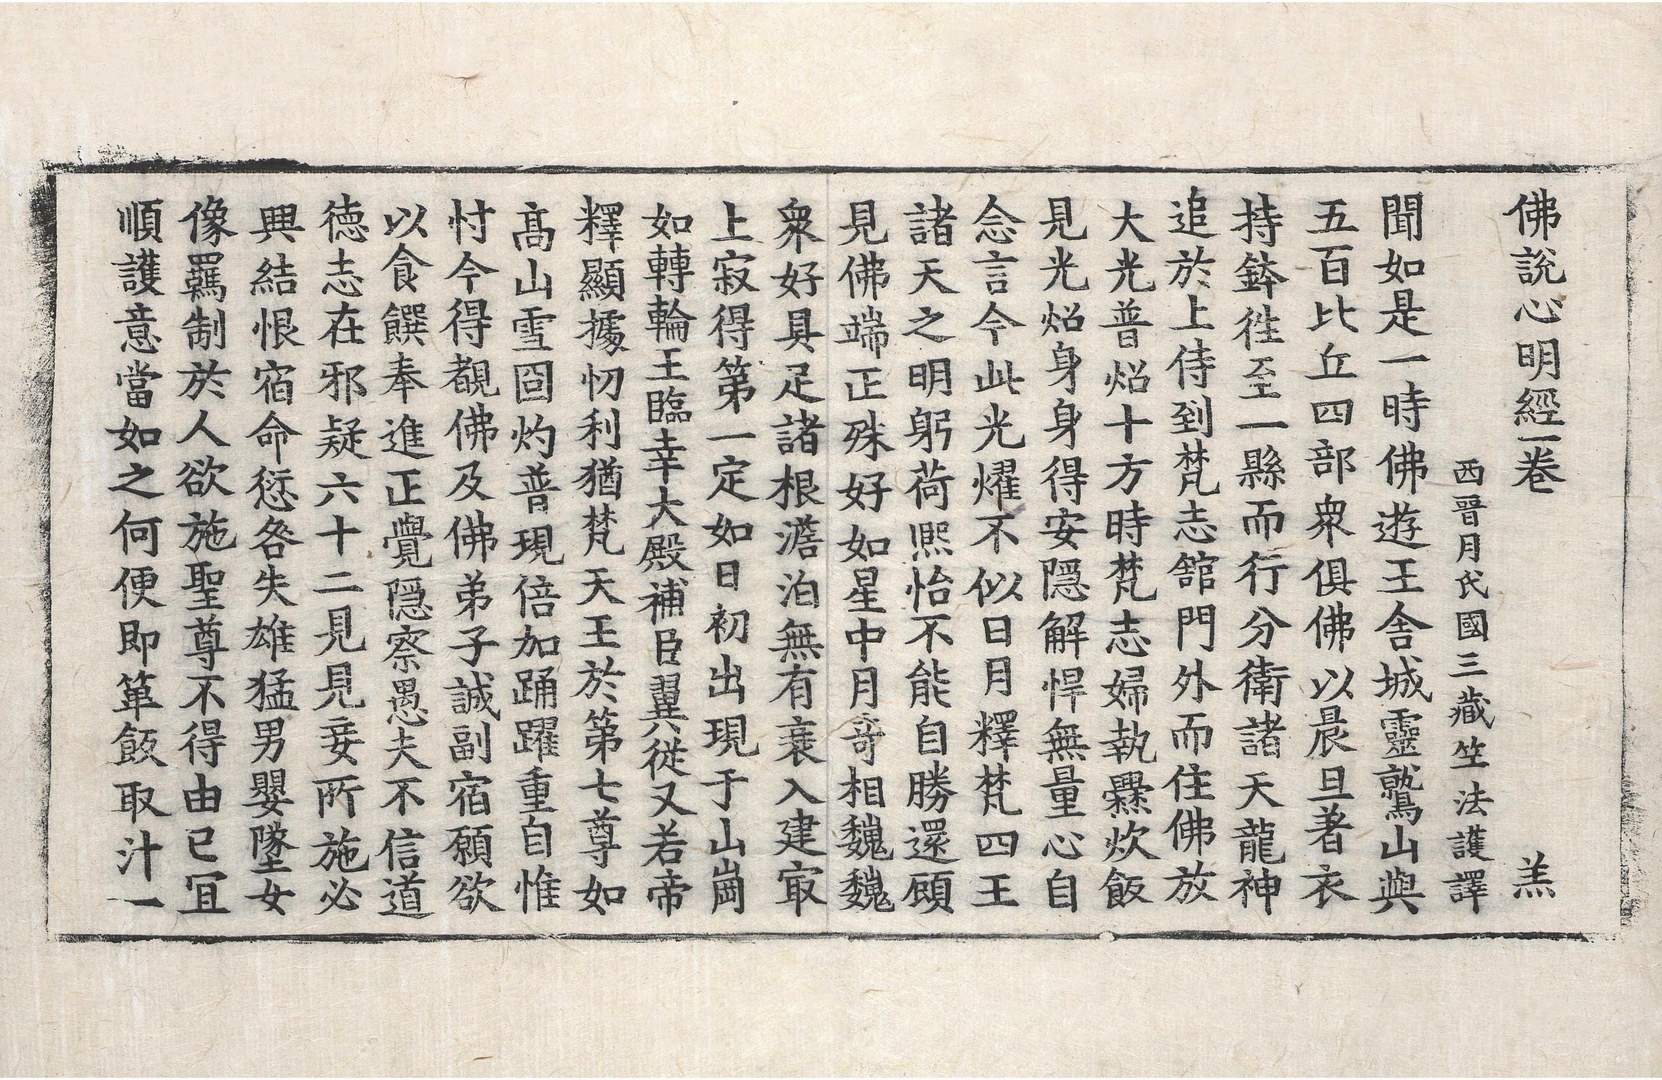 佛說心明經一卷 羔
西晉月氏國三藏竺法護譯
聞如是一時佛遊王舍城靈鷲山與
五百比丘四部衆俱佛以晨旦著衣
持鉢徃至一縣而行分衛諸天龍神
追於上侍到梵志舘門外而住佛放
大光普炤十方時梵志婦執爨炊飯
見光炤身身得安隱解悍無量心自
念言今此光燿不似日月釋梵四王
諸天之明躬荷熈怡不能自勝還顧
見佛端正殊好如星中月奇相魏魏
衆好具足諸根澹泊無有衰入建㝡
上寂得第一定如日初出現于山崗
如轉輪王臨幸大殿補臣翼從又若帝
釋顯據忉利猶梵天王於第七尊如
高山雪囧灼普現倍加踊躍重自惟
忖今得覩佛及佛弟子誠副宿願欲
以食饌奉進正覺隱察愚夫不信道
德志在邪疑六十二見見妾所施必
興結恨宿命愆咎失雄猛男嬰墜女
像羈制於人欲施聖尊不得由已冝
順護意當如之何便即箄飯取汁一